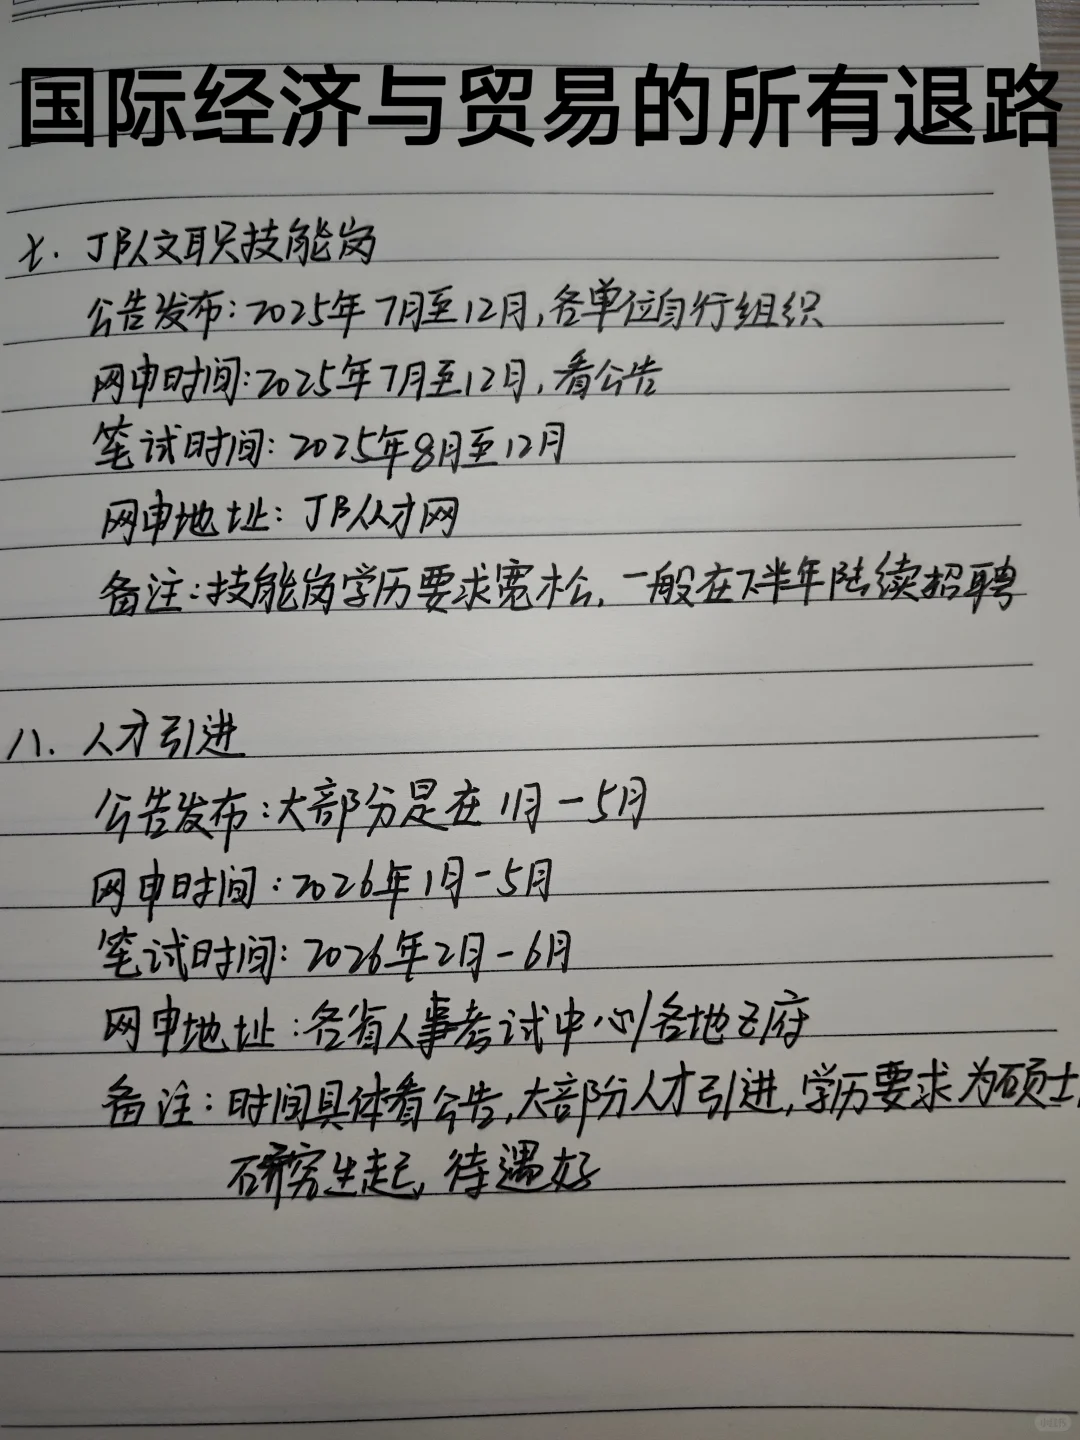 国际经济与贸易的所有退路
七. JB队文职技能岗
公告发布:2025年7月至12月,各单位自行组织
网申时间:2025年7月至12月,看公告
笔试时间:2025年8月至12月
网申地址:JB人才网
备注:技能岗学历要求宽松,一般在下半年陆续招聘
八. 人才引进
公告发布:大部分是在1月-5月
网申时间:2026年1月-5月
笔试时间:2026年2月-6月
网申地址:各省人事考试中心/各地z府
备注:时间具体看公告,大部分人才引进,学历要求为硕士
研究生起,待遇好
小红书